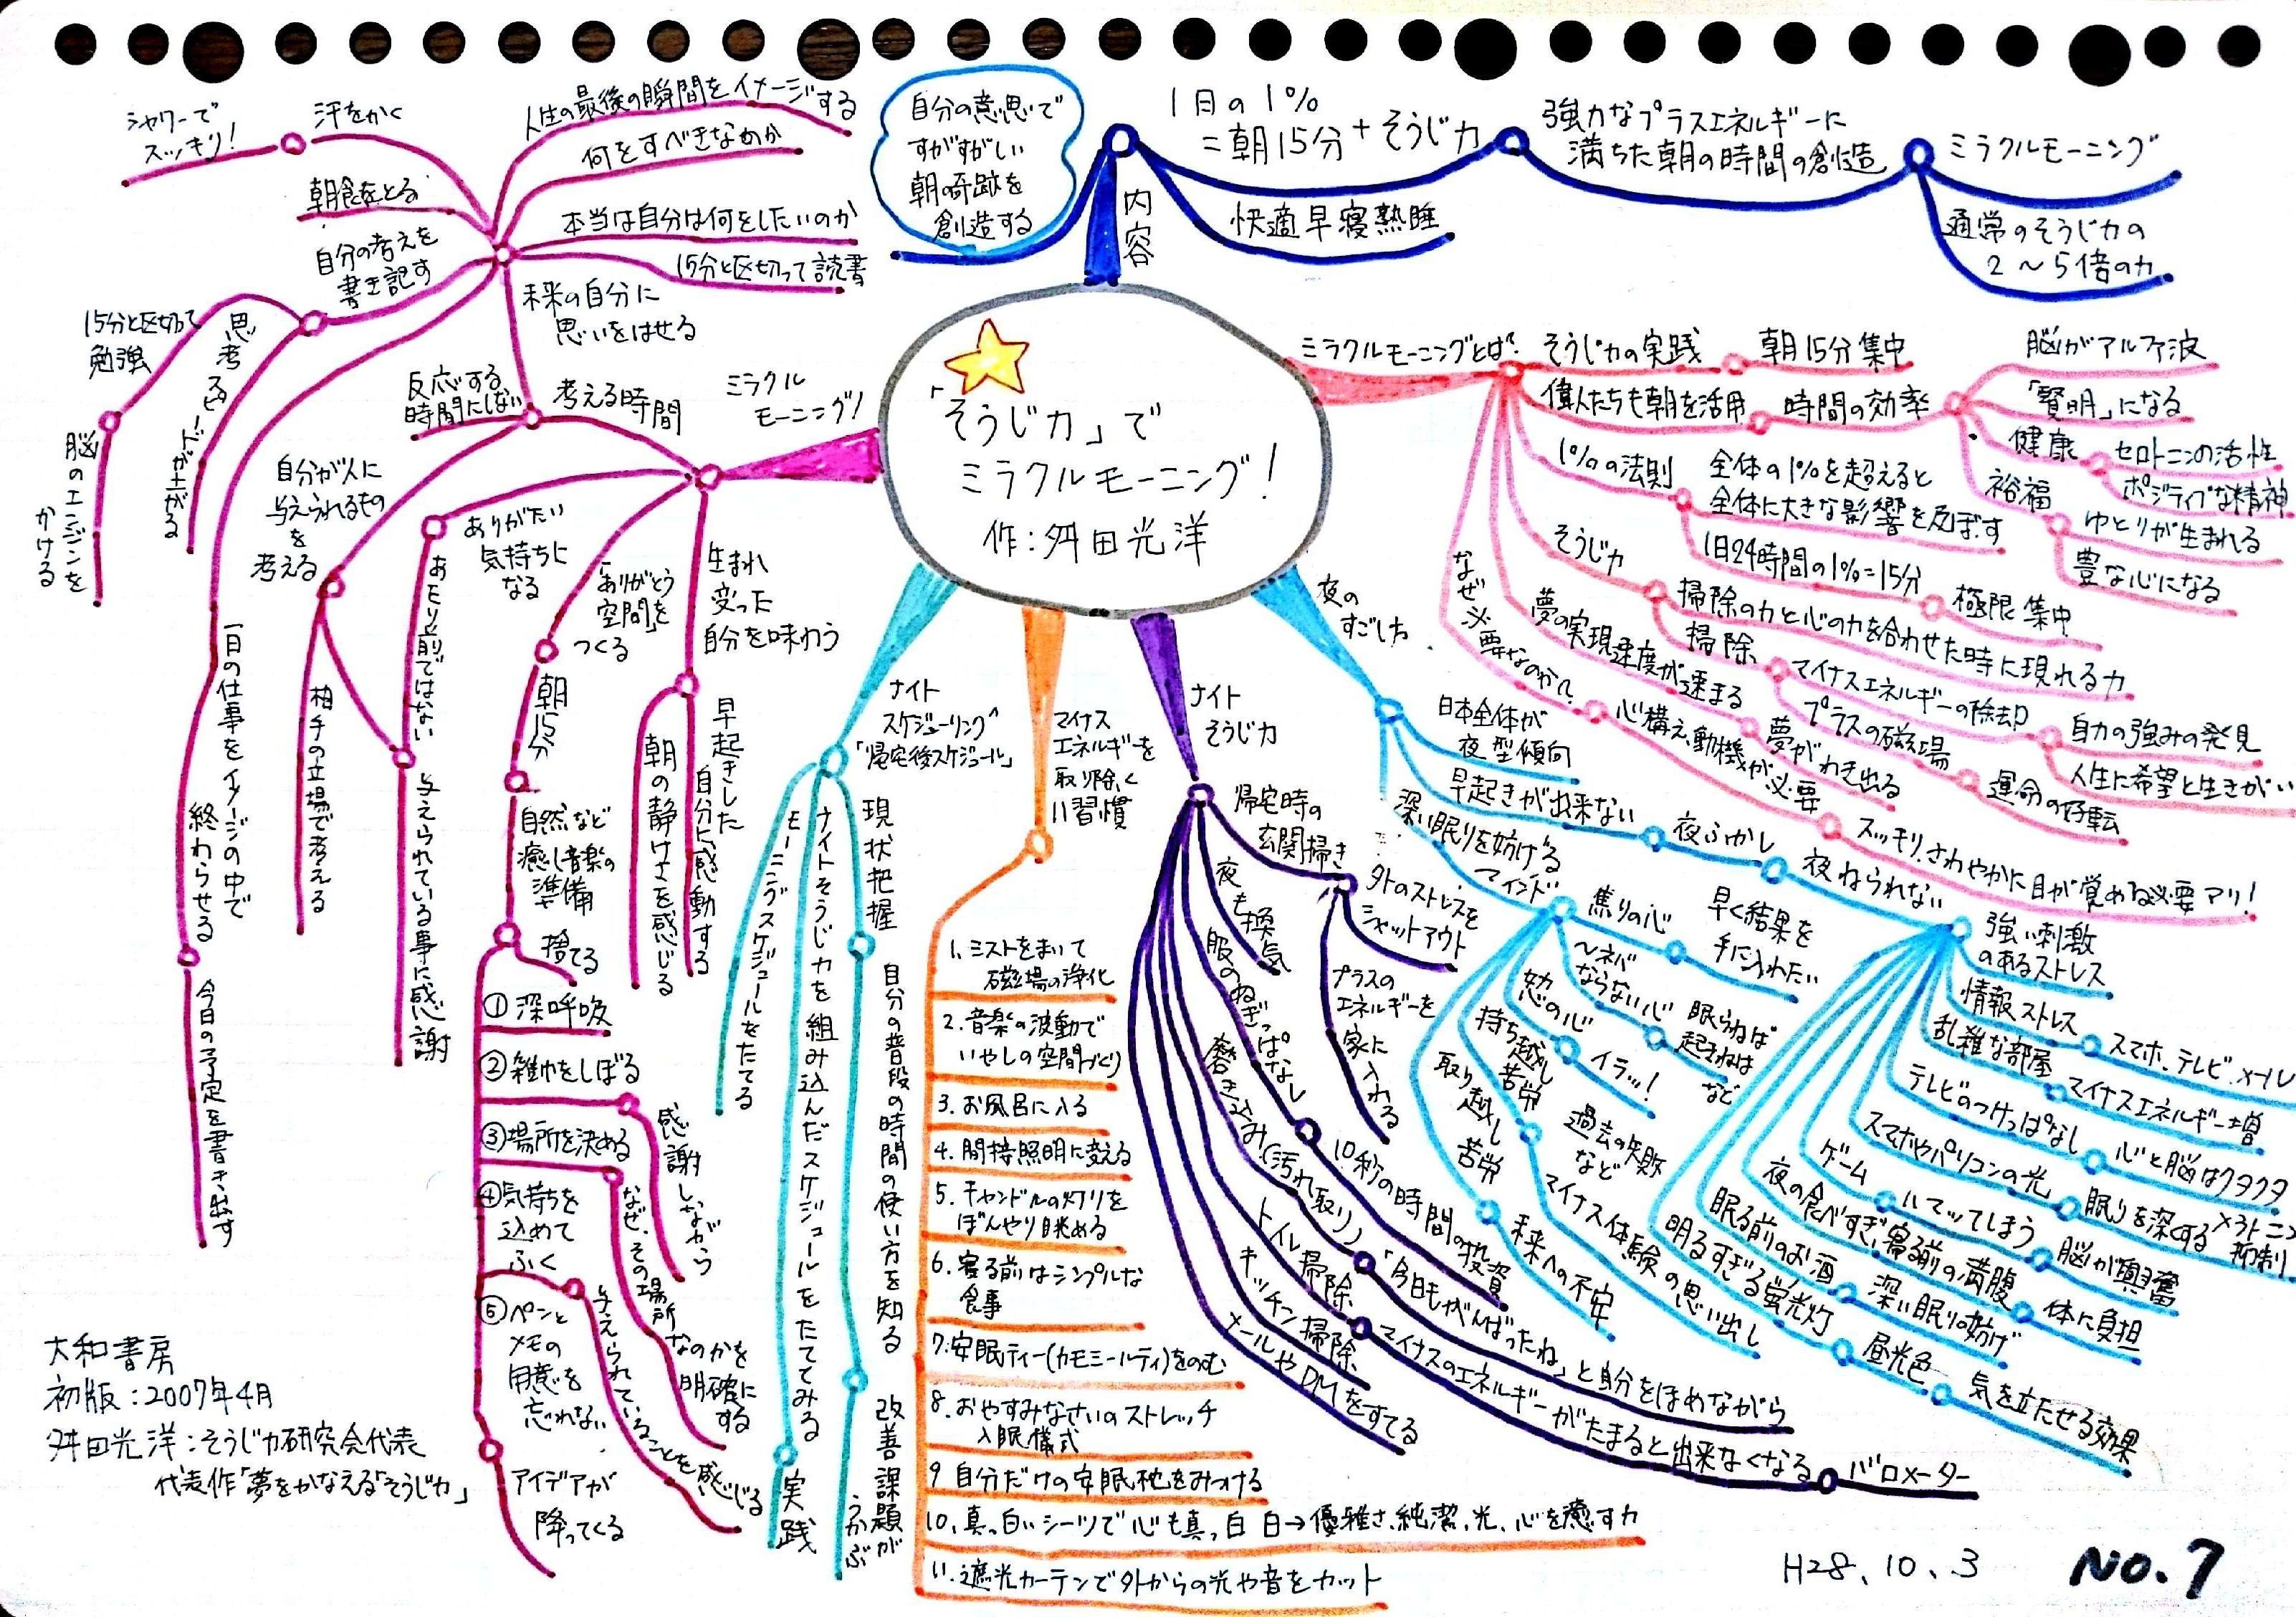 「そうじ力」で
ミラクルモーニング!
作:舛田光洋
内容
自分の意思で
すがすがしい
朝の奇跡を
創造する
1日の1%
=朝15分+そうじ力
快適早寝熟睡
強力なプラスエネルギーに
満ちた朝の時間の創造
ミラクルモーニング
通常のそうじ力の
2〜5倍の力
ミラクルモーニングとは?
そうじ力の実践
朝15分集中
偉人たちも朝を活用
時間の効率
脳がアルファ波
「賢明」になる
健康
セロトニンの活性
ポジティブな精神
裕福
ゆとりが生まれる
豊かな心になる
1%の法則
全体の1%を超えると
全体に大きな影響を及ぼす
1日24時間の1%=15分
極限集中
そうじ力
掃除の力と心の力を合わせた時に現れる力
掃除
マイナスエネルギーの除去
自力の強みの発見
人生に希望と生きがい
プラスの磁場
運命の好転
夢の実現速度が速まる
夢がわき出る
なぜ必要なのか?
心構え、動機が必要
スッキリ、さわやかに目が覚める必要アリ!
夜の
すごし方
日本全体が
夜型傾向
早起きが出来ない
夜ふかし
夜ねられない
強い刺激
のあるストレス
情報ストレス
スマホ、テレビ、メール
乱雑な部屋
マイナスエネルギー増
テレビのつけっぱなし
心と脳はクタクタ
スマホやパソコンの光
眠りを深くするメラトニン
抑制
ゲーム
ハマッてしまう
脳が興奮
夜の食べすぎ、寝る前の満腹
体に負担
眠る前のお酒
深い眠りの妨げ
明るすぎる蛍光灯
昼光色
気を立たせる効果
深い眠りを妨げる
マインド
焦りの心
早く結果を
手に入れたい
〜ネバ
ならない心
眠らねば
起きねば
など
怒の心
イラッ!
持ち越し
苦労
過去の失敗
など
マイナス体験の思い出し
取り越し
苦労
未来への不安
ナイト
そうじ力
帰宅時の
玄関掃き
外のストレスを
シャットアウト
プラスの
エネルギーを
家に入れる
夜も換気
服のぬぎっぱなし
10秒の時間の投資
磨き込み(汚れ取り)
「今日もがんばったね」と自分をほめながら
トイレ掃除
マイナスのエネルギーがたまると出来なくなる
バロメーター
キッチン掃除
メールやDMをすてる
マイナス
エネルギーを
取り除く
11習慣
1、ミストをまいて
磁場の浄化
2、音楽の波動で
いやしの空間づくり
3、お風呂に入る
4、間接照明に変える
5、キャンドルの灯りを
ぼんやり眺める
6、寝る前はシンプルな
食事
7、安眠ティー(カモミールティ)をのむ
8、おやすみなさいのストレッチ
入眠儀式
9 自分だけの安眠枕をみつける
10、真っ白いシーツで心も真っ白 白→優雅さ、純潔、光、心を癒す力
11、遮光カーテンで外からの光や音をカット
ナイト
スケジューリング
「帰宅後スケジュール」
現状把握
自分の普段の時間の使い方を知る
改善課題が
うかぶ
ナイトそうじ力を組み込んだスケジュールをたててみる
実践
モーニングスケジュールをたてる
ミラクル
モーニング!
考える時間
反応する
時間にしない
未来の自分に
思いをはせる
人生の最後の瞬間をイメージする
何をすべきなのか
本当は自分は何をしたいのか
15分と区切って読書
汗をかく
シャワーで
スッキリ!
朝食をとる
自分の考えを
書き記す
思考スピードが上がる
15分と区切って
勉強
脳のエンジンを
かける
一日の仕事をイメージの中で
終わらせる
今日の予定を書き出す
自分が人に
与えられるもの
を
考える
相手の立場で考える
ありがたい
気持ちに
なる
あたり前ではない
与えられている事に感謝
「ありがとう
空間」を
つくる
朝15分
自然など
癒し音楽の
準備
捨てる
①深呼吸
②雑巾をしぼる
感謝しながら
③場所を決める
なぜ、その場所
なのかを
明確に
する
④気持ちを
込めて
ふく
与えられていることを感じる
⑤ペンと
メモの
用意を
忘れない
アイデアが
降ってくる
生まれ
変った
自分を味わう
早起きした
自分に感動する
朝の静けさを感じる
大和書房
初版:2007年4月
舛田光洋:そうじ力研究会代表
代表作「夢をかなえる「そうじ力」
H28.10.3
NO.7